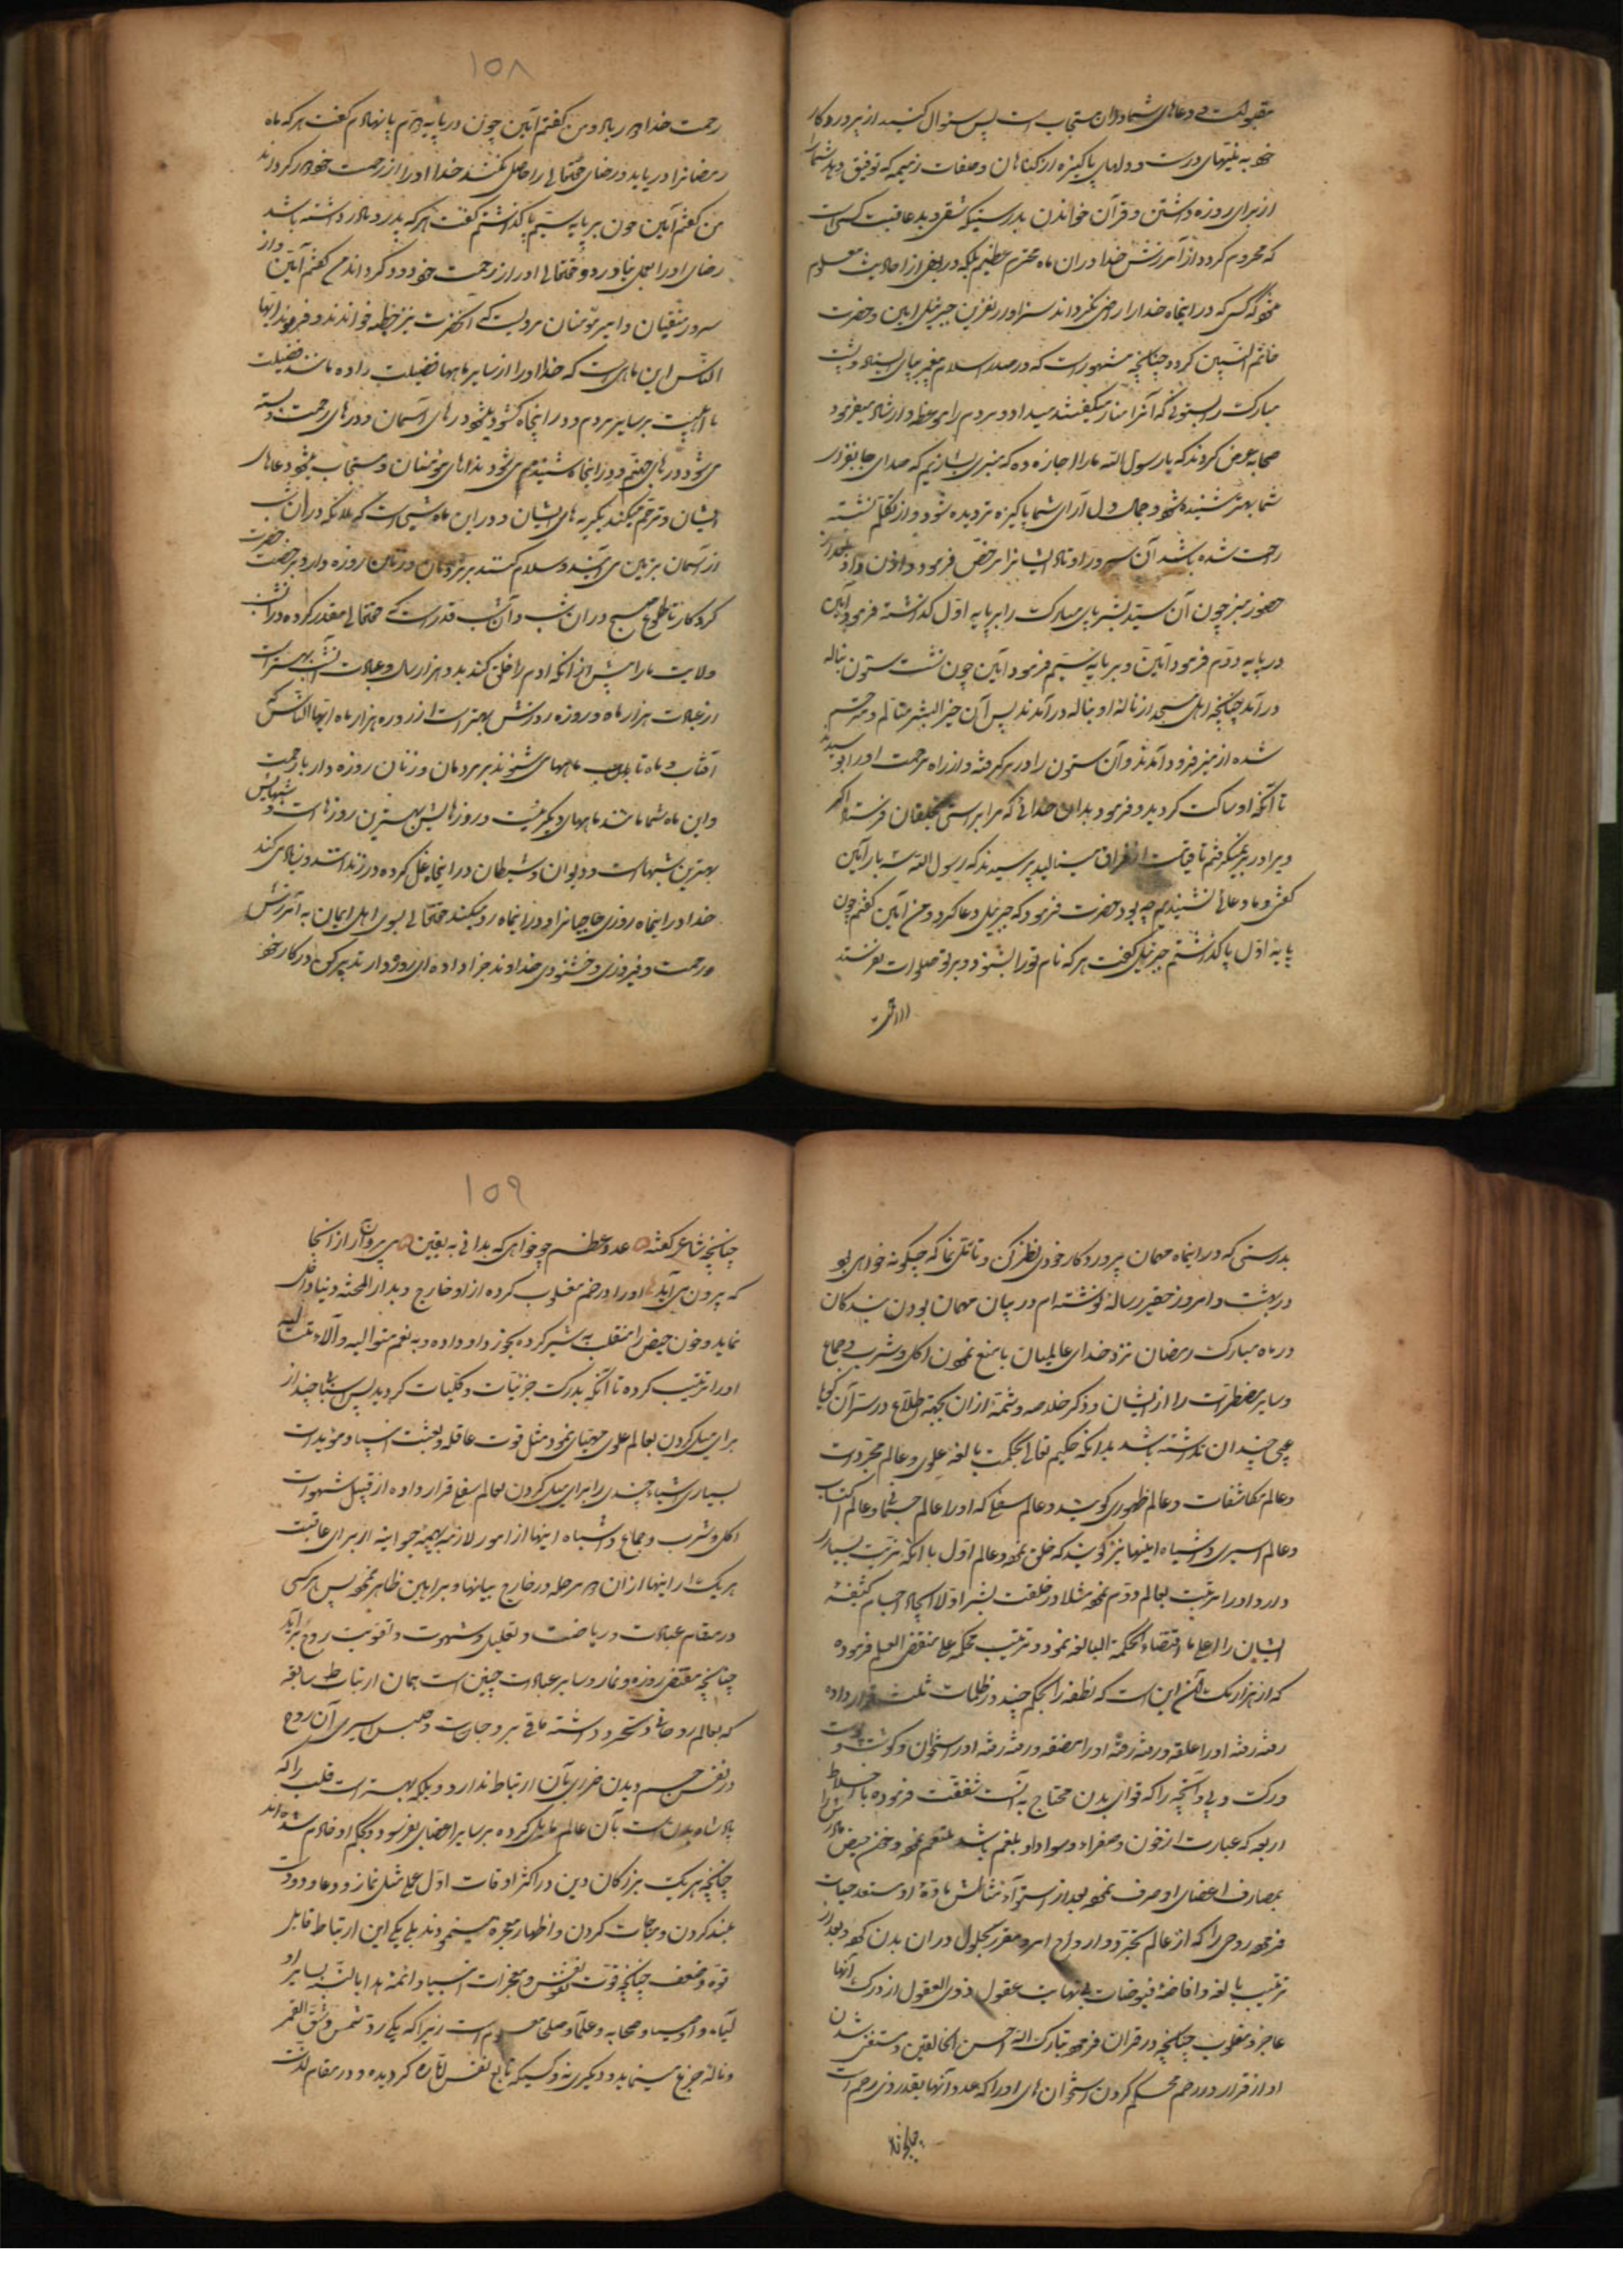 مقبولست و دعاهای شما دران مستجاب است پس سئوال کنید از پروردکار
خود به نیتهای درست و دلهای پاکیزه از کناهان و صفات ذمیمه که توفیق دهد شما را
از برای روزه داشتن و قرآن خواندن بدرستیکه شقی و بد عاقبت کسی است
که محروم کردد از آمرزش خدا در این ماه محترم عظیم بلکه در بعضی از احادیث معلوم
کسی که در اینماه خدا را راضی نکرداند سزاوار نفرین جبرئیل امین و حضرت
خاتم النبیین کردد چنانچه مشهور است که در صدر اسلام پیغمبر بپای ایستاده و پشت
مبارک را بستونی که آنرا حنانه میکفتند میداد و مردم را موعظه و ارشاد میفرمود
صحابه عرض کردند که یا رسول الله ما را اجازه ده که منبری بسازیم که صدای جانفزای
شما بهتر شنیده شود و جمال دل آرای شما پاکیزه تر دیده شود و از تکلم نشسته
راحت شده باشد آن سرور اوتاد ایشانرا مرخص فرمود و اذن داد بعد از
حضور منبر چون آن سید بشر پای مبارک را بر پایه اول کذاشته فرمود آمین
در پایه دوم فرمود آمین و بر پایه سیم فرمود آمین چون نشست ستون بناله
درآمد چنانچه اهل مسجد از ناله او بناله درآمدند پس آن خیر البشر متالم و مترحم
شده از منبر فرود آمدند و آن ستون را در بر کرفته و از راه مرحمت او را بوسیدند
تا آنکه او ساکت کردید و فرمود بدان خدائی که مرا براستی بخلقان فرستاد اکر
ویرا در بر نمیکرفتم تا قیامت از فراق مینالید پرسیدند که یا رسول الله سه بار آمین
کفتی و ما دعائی نشنیدیم چه بود حضرت فرمود که جبرئیل دعا کرد و من آمین کفتم چون
پایهٔ اول پا کذاشتم جبرئیل کفت هر که نام تو را بشنود و بر تو صلوات نفرستد
از رحمت
١٥٨
رحمت خدا دور باد و من کفتم آمین چون در پایه دوم پا نهادم کفت هر که ماه
رمضانرا دریابد و رضای حقتعالی را حاصل نکند خدا او را از رحمت خود دور کرداند
من کفتم آمین چون بر پایه سیم پا کذاشتم کفت هر که پدر و مادر داشته باشد
رضای او را بعمل نیاورد و حقتعالی او را از رحمت خود دور کرداند من کفتم آمین و از
سرور متقیان و امیر مؤمنان مرویست که آنحضرت بر منبر خطبه خواندند و فرمودند ایها
الناس این ماهی است که خدا او را از سایر ماهها فضیلت داده مانند فضیلت
ما اهلبیت بر سایر مردم و در اینماه کشوده میشود درهای آسمان و درهای رحمت و بسته
می شود درهای جهنم و در اینماه شنیده می شود نداهای مؤمنان و مستجاب میشود دعاهای
ایشان و ترحم میکند بکریه های ایشان و در این ماه شبی است که ملائکه در آن شب
از آسمان بزمین می آیند و سلام کنند بر مردان و زنان روزه دار و برخصت حضرت
کردکار تا طلوع صبح در آن شب و آن شب قدر است که حقتعالی مقدر کرده در آنشب
ولایت ما را پیش از آنکه آدم را خلق کند بدو هزار سال و عبادت آنشب بهتر است
از عبادت هزار ماه و روزه روزش بهتر است از روزه هزار ماه ایها الناس
آفتاب و ماه تابان بر مردمان و زنان روزه دار با رحمت
و این ماه شما مانند ماههای دیکر نیست و روزهایش بهترین روزهاست و شبهایش
بهترین شبهاست و دیوان و شیطان در اینماه غل کرده در زنداننند و زیاد می کند
خدا در اینماه روزی و در اینماه رو میکند حقتعالی بسوی اهل ایمان به آمرزش
و رحمت و فیروزی و خشنودی خداوند جزا داده ای روزه دار تدبیر کن در کار خود
بدرستی که در اینماه مهمان پروردکار خودی نظر کن و تامل نما که چکونه خواهی بود
در بهشت و امروز حقیر رسالهٔ نوشته ام در بیان مهمان بودن بندکان
در ماه مبارک رمضان نزد خدای عالمیان با منع نمودن اکل و شرب و جماع
و سایر مفطرات را از ایشان و ذکر خلاصه و شمهٔ از آن بجهة اطلاع در ستر آن کویا
عیبی چندان نداشته باشد بدانکه حکیم تعالی بحکمت بالغه علوی و عالم مجردات
و عالم مکاشفات و عالم ظهوری کویند و عالم سفلی که او را عالم جسمانی و عالم اکتساب
و عالم اسیری و اشباه اینها نیز کویند که خلق نمود و عالم اول با آنکه شرافت بسیار
دارد او را مرتبت بعالم دوم نموده مثلا در خلقت بشر اولا ایجاد اجسام کثیفهٔ
ایشان را علی ما اقتضاء الحکمة البالغه نمود و ترتیب محکمه علی مقتضی العلم فرموده
که از هزار یک آن این است که نطفه را بحکم چند در ظلمات ثلث قرار داده
رفته رفته او را علقه و رفته رفته او را مضغه و رفته رفته او را استخوان و کوشت و پوست
و رک و پی و آنچه را که قوای بدن محتاج به آنست شفقت فرموده با اخلاط
اربعه که عبارت از خون و صفرا و سودا و بلغم باشد ملتئم نمود و خون حیض مادر را
بمصارف اعضای او صرف نموده بعد از استواء نشأتش ماده او مستعد حیات
فرموده روحی را که از عالم تجرد و ارواح امر و مقرر بحلول در آن بدن کرده و بعد از
ترتیب بالغه و افاضهٔ فیوضات بی نهایت عقول ذوی العقول از درک آنها
عاجز و مغلوب چنانچه در قران فرموده تبارک الله احسن الخالقین و مستغنی شدن
او از قرار در رحم محکم کردن استخوان های او را که عدد آنها بقدر رحم است
چنانچه
١٥٩
چنانچه شاعر کفته عدد عظم چو خواهی که بدانی به یقین
که بیرون می آید او را در رحم مغلوب کرده از او خارج و بدار المحنه دنیا داخل
نماید و خون حیض را منقلب به شیر کرده بخورد او داده و به نعم متوالیه و آلاء
او را ترتیب کرده تا آنکه بدرک جزئیات و کلیات کردید پس اسباب چند از
برای میل کردن بعالم علوی مهیا نمود مثل قوت عاقله و بعثت انبیاء و مؤیدات
بسیاری اشیاء چندی را برای میل کردن بعالم سفلی قرار داده از قبیل شهوات
اکل و شرب و جماع و اشباه اینها از امور لازمه بهیمه حیوانیه از برای عاقبت
هر یک را اینها از آن در مرحله در خارج بیانها و براهین ظاهر نموده پس هر کسی
در مقام عبادت و ریاضت و تقلیل شهوت و تقویت روح برآید
چنانچه مقتضی روزه و نماز و سایر عبادات چنین است همان ارتباط سابقه
که بعالم روحانی و تجرد داشته باقی بر و حبس اسیری آن روح
در قفس جسم و بدن ضرری بآن ارتباط ندارد و بلکه بهتر است قلب را که
پادشاه بدن است بآن عالم مایل کرده بر سایر اعضای نفرسود و بحکم او خادم شده اند
چنانچه هر یک بزرکان دین در اکثر اوقات اول عملی مثل نماز و دعا و دست
بلند کردن و مناجات کردن و اظهار معجزه مینمودند بلی یکی این ارتباط قابل
قوة و ضعف چنانچه قوت نفوس و معجزات انبیاء و ائمهٔ هدا بالنسبه بسایر
و اوصیاء و صحابه و علما و صلحا معلوم است زیرا که یکی رد شمس و شق القمر
و نالهٔ جزع مینماید و دیکری نه و کسیکه تابع نفس اماره کردیده و در مقام لذت